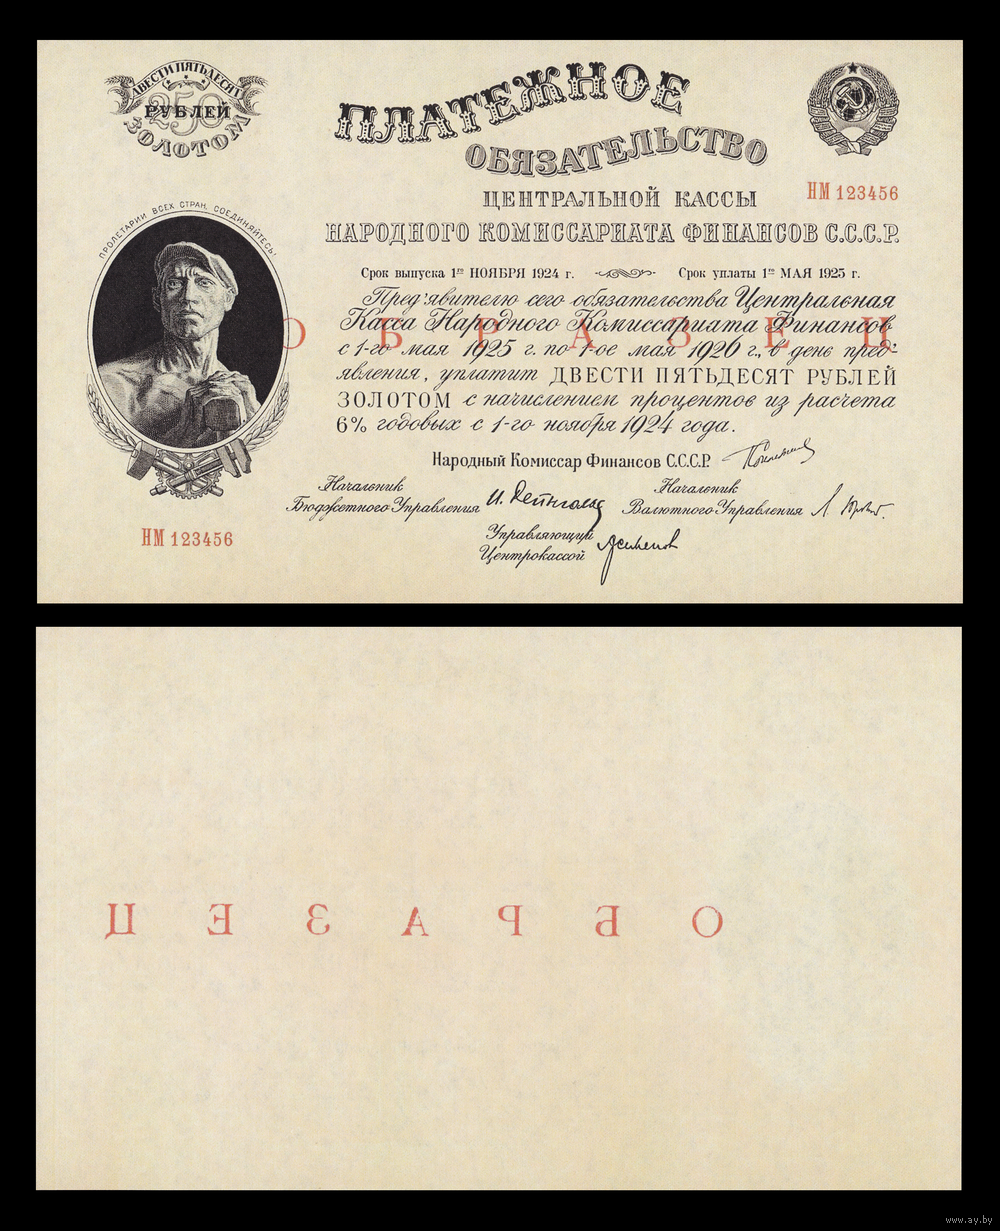 ДВЕСТИ ПЯТЬДЕСЯТ
250
РУБЛЕЙ
ЗОЛОТОМ
ПЛАТЕЖНОЕ
ОБЯЗАТЕЛЬСТВО
ЦЕНТРАЛЬНОЙ КАССЫ
НАРОДНОГО КОМИССАРИАТА ФИНАНСОВ С.С.С.Р.
НМ 123456
ПРОЛЕТАРИИ ВСЕХ СТРАН, СОЕДИНЯЙТЕСЬ!
Срок выпуска 1го НОЯБРЯ 1924 г. Срок уплаты 1го МАЯ 1925 г.
Пред'явителю сего обязательства Центральная
Касса Народного Комиссариата Финансов
О Б Р А З Е Ц
с 1-го мая 1925 г. по 1-ое мая 1926 г., в день пред'-
явления, уплатит ДВЕСТИ ПЯТЬДЕСЯТ РУБЛЕЙ
ЗОЛОТОМ с начислением процентов из расчета
6% годовых с 1-го ноября 1924 года.
Народный Комиссар Финансов С.С.С.Р.
Начальник
Бюджетного Управления
Начальник
Валютного Управления
Управляющий
Центрокассой
НМ 123456
О Б Р А З Е Ц
www.ay.by